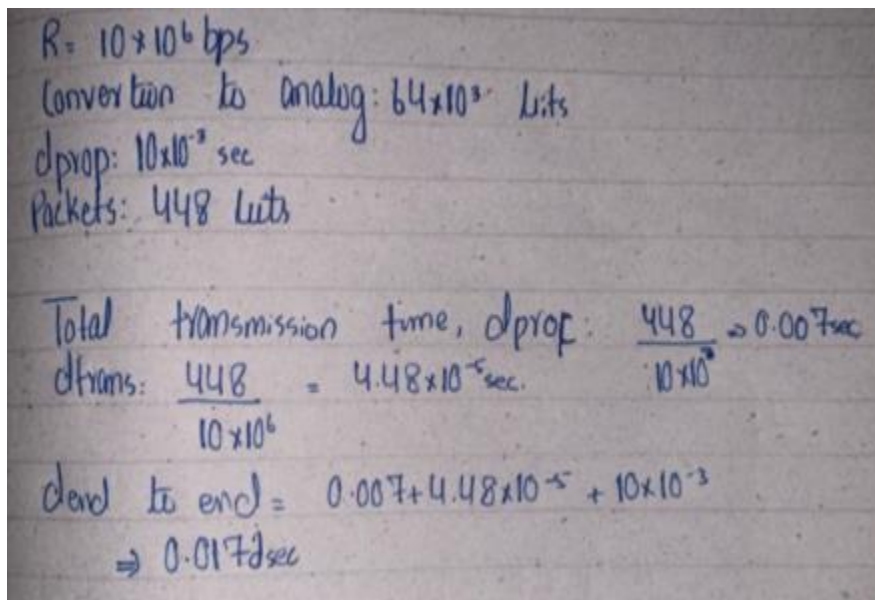 R= 10*10⁶ bps
Convertion to analog: 64x10³ bits
dprop: 10x10⁻³ sec
Packets: 448 bits
Total transmission time, dprop: 448 / 10x10³ ⇒ 0.007sec
dtrans: 448 / 10x10⁶ = 4.48x10⁻⁵ sec.
dend to end = 0.007+4.48x10⁻⁵ + 10x10⁻³
⇒ 0.0172sec